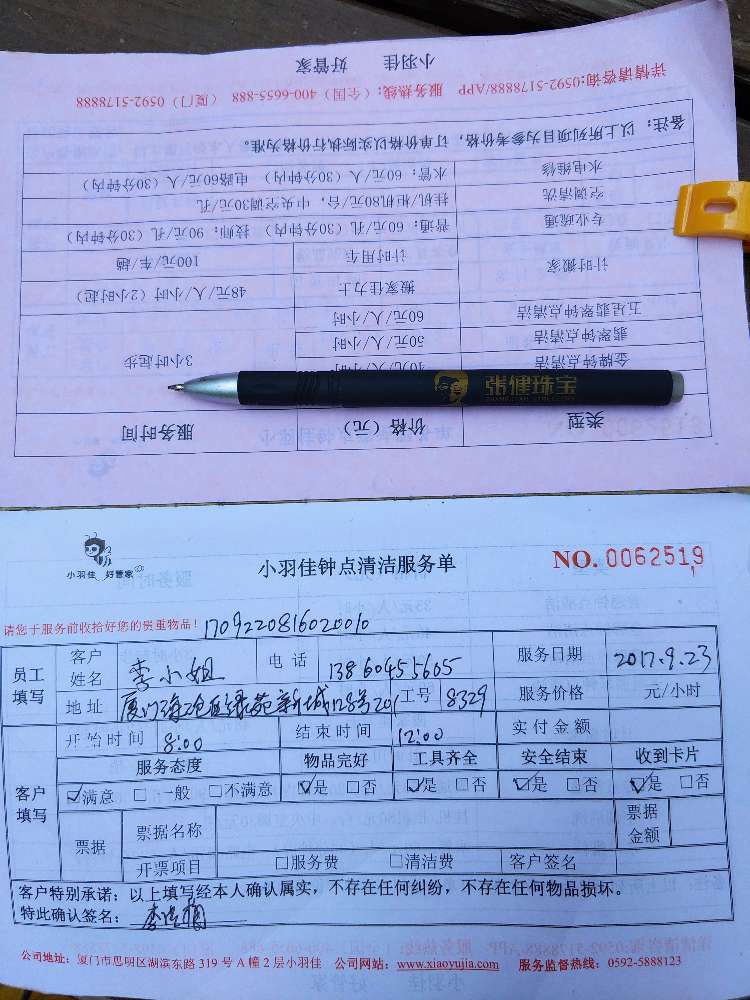 小羽佳 好管家
详情请咨询:0592-5178888/APP 服务热线:(全国)400-6655-888 (厦门)0592-5178888
备注:以上所列项目为参考价格,订单价格以实际执行价格为准。
水电维修 水管:60元/人(30分钟内) 电路60元/人(30分钟内)
空调清洗 挂机/柜机80元/台,中央空调30元/孔
专业疏通 普通:60元/孔(30分钟内) 技师:90元/孔(30分钟内)
计时搬家 计时用车 100元/车/趟
搬家佳力士 48元/人/小时(2小时起)
五星翡翠钟点清洁 60元/人/小时
翡翠钟点清洁 50元/人/小时 3小时起步
金牌钟点清洁 40元/人/小时
张健珠宝
类型 价格(元) 服务时间
小羽佳 好管家
小羽佳钟点清洁服务单
NO. 0062519
请您于服务前收拾好您的贵重物品! 1709220816020010
员工填写 客户姓名 李小姐 电话 13860455605 服务日期 2017.9.23
地址 厦门海沧区绿苑新城128号201 工号 8329 服务价格 元/小时
客户填写 开始时间 8:00 结束时间 12:00 实付金额
服务态度 物品完好 工具齐全 安全结束 收到卡片
☑满意 □一般 □不满意 ☑是 □否 ☑是 □否 ☑是 □否 ☑是 □否
票据 票据名称 票据金额
开票项目 □服务费 □清洁费 客户签名
客户特别承诺:以上填写经本人确认属实,不存在任何纠纷,不存在任何物品损坏。
特此确认签名:
公司地址:厦门市思明区湖滨东路 319 号 A 幢 2 层小羽佳 公司网站:www.xiaoyujia.com 服务监督热线:0592-5888123